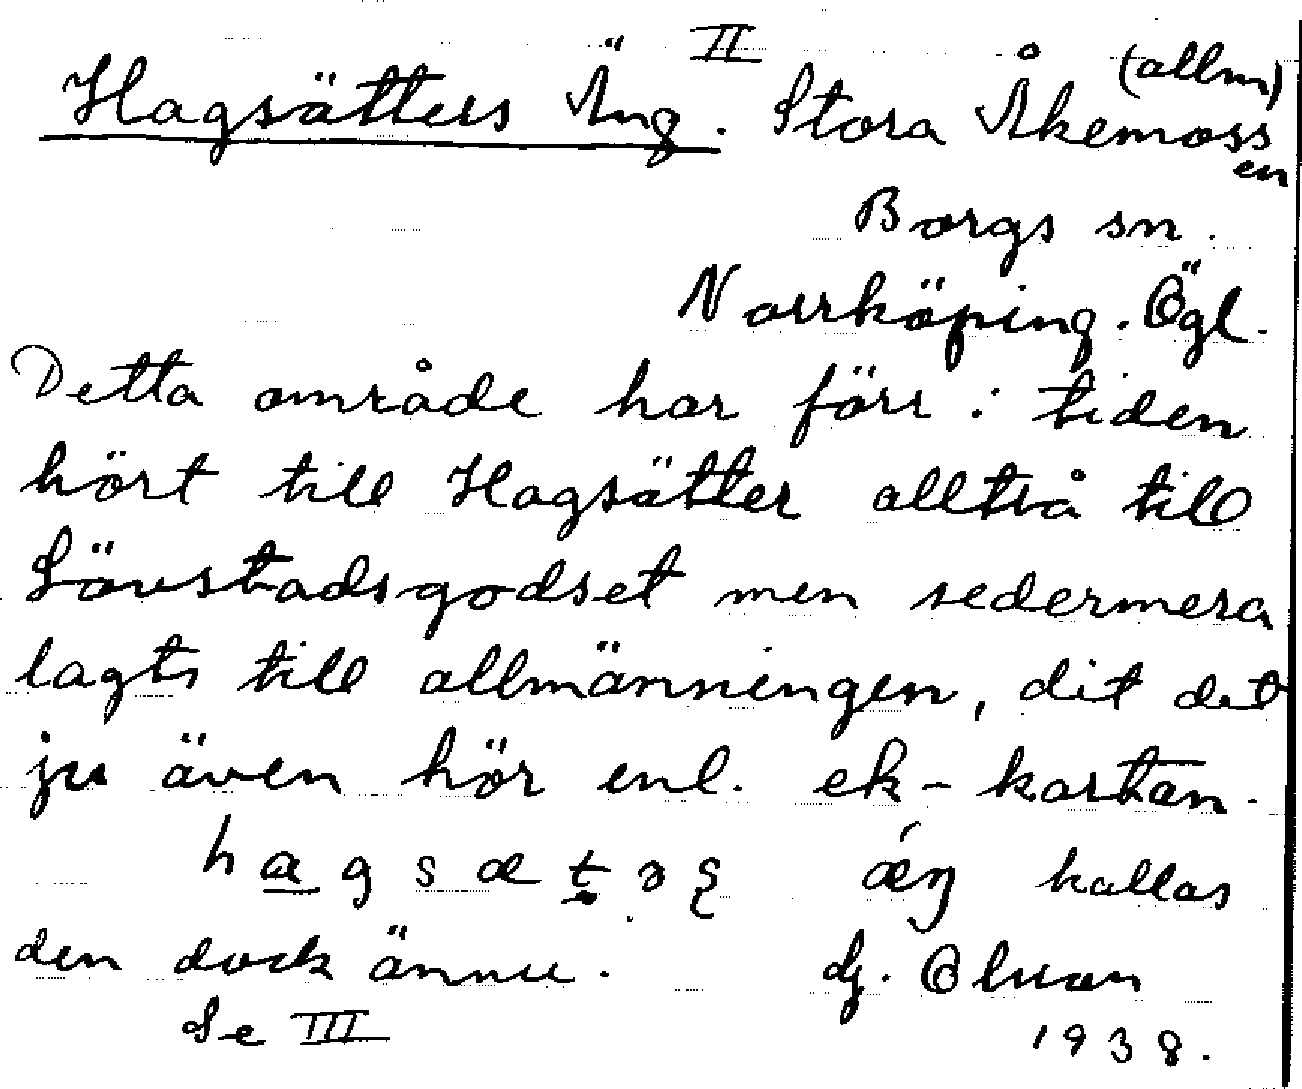 II
Hagsätters Äng. Stora Åkemoss (allm)
en
Borgs sn.
Norrköping. Ögl.
Detta område har förr i tiden
hört till Hagsätter alltså till
Lövstadsgodset men sedermera
lagts till allmänningen, dit det
ju även hör enl. ek-kartan.
kallas
den dock ännu.
Se III
1938.